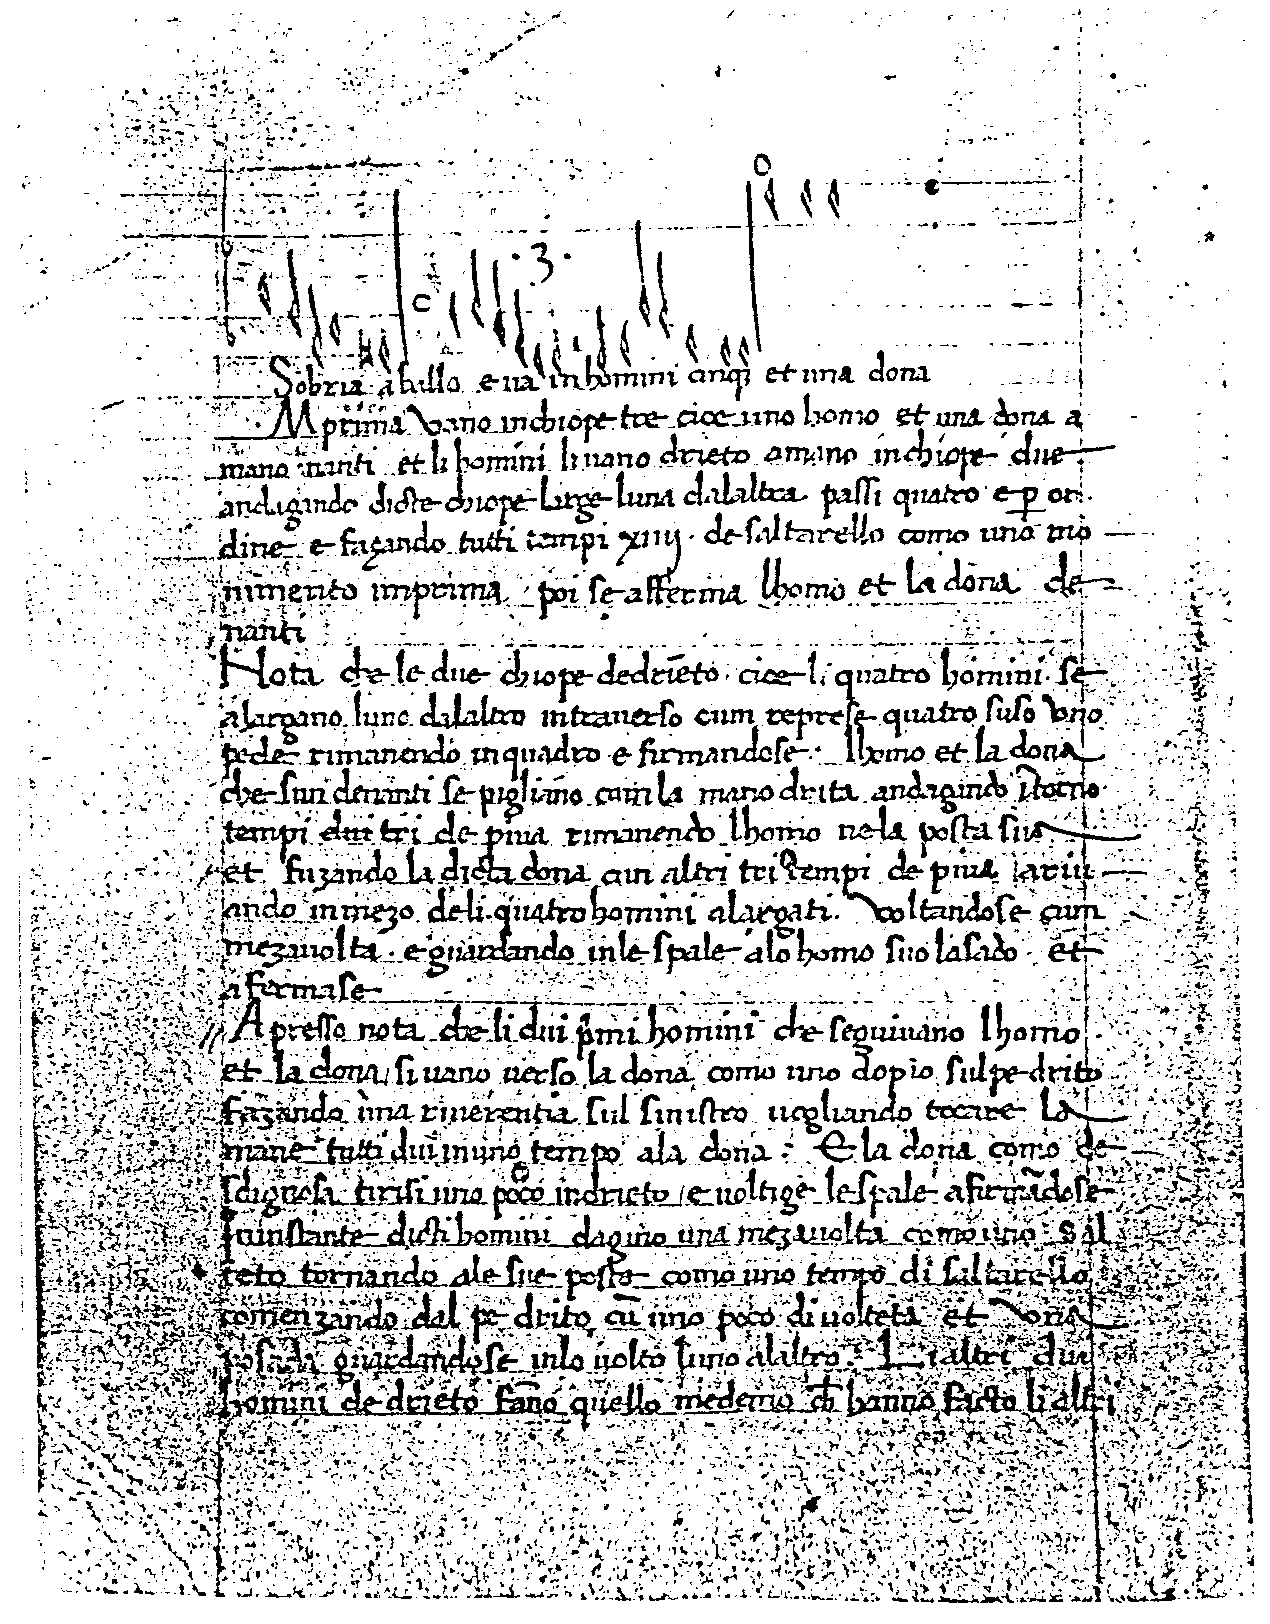 C .3.
Sobria a ballo e va in homini cinqȝ et una dona
Mprima Vano in chiope tre cioe uno homo et una dona a
mano nanti et li homini li uano drieto a mano in chiope due
andagando dicte chiope large luna dalaltra passi quatro e ꝑ or
dine e façando tutti tempi xiiij. de saltarello como uno mo
uimento imprima poi se afferma lhomo et la dona de
nanti
Nota che le due chiope dedrieto. cioe li quatro homini. se
alargano luno dalaltro intrauerso cum represe quatro suso Vno
pede rimanendo in quadro e firmandose. lhomo et la dona
che sun denanti se pigliano cum la mano drita andagando Jtorno
tempi dui tri de piua rimanendo lhomo ne la posta sua
et fuzando la dicta dona cun altri tri tempi de piua ariu
ando in mezo de li quatro homini alargati. Voltandose cum
mezauolta. e guardando in le spale alo homo suo lasado. et
afermase
// Apresso nota che li dui p̃mi homini che seguiuano lhomo
et la dona, si uano uerso la dona como uno dopio sul pe drito
fazando una riuerentia sul sinistro uogliando tocare la
mane tutti dui in uno tempo ala dona: E la dona como de
sdignosa tirisi uno poco indrieto e uoltige le spale afirmãdose
Juinstante dicti homini dagino una mezauolta como uno sal
teto tornando ale sue poste como uno tempo di saltarello
comenzando dal pe drito cũ uno poco di uolteta et Vona
posada guardandose in lo uolto luno alaltro. Li altri dui
homini de drieto fãno quello medemo ch̃ hanno facto li altri